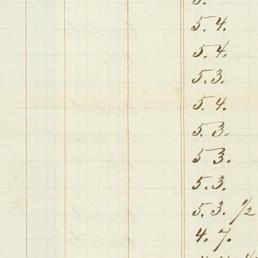 5. 4.
5. 4.
5. 3.
5. 4.
5 3.
5 3.
5. 3.
5. 3. 1/2
4. 7.